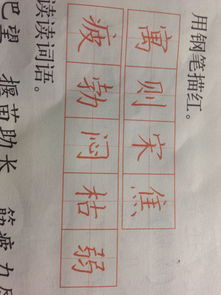 用钢笔描红。
寓则宋焦
疲勃闷枯弱
读读词语。
巴望 揠苗助长 筋疲力